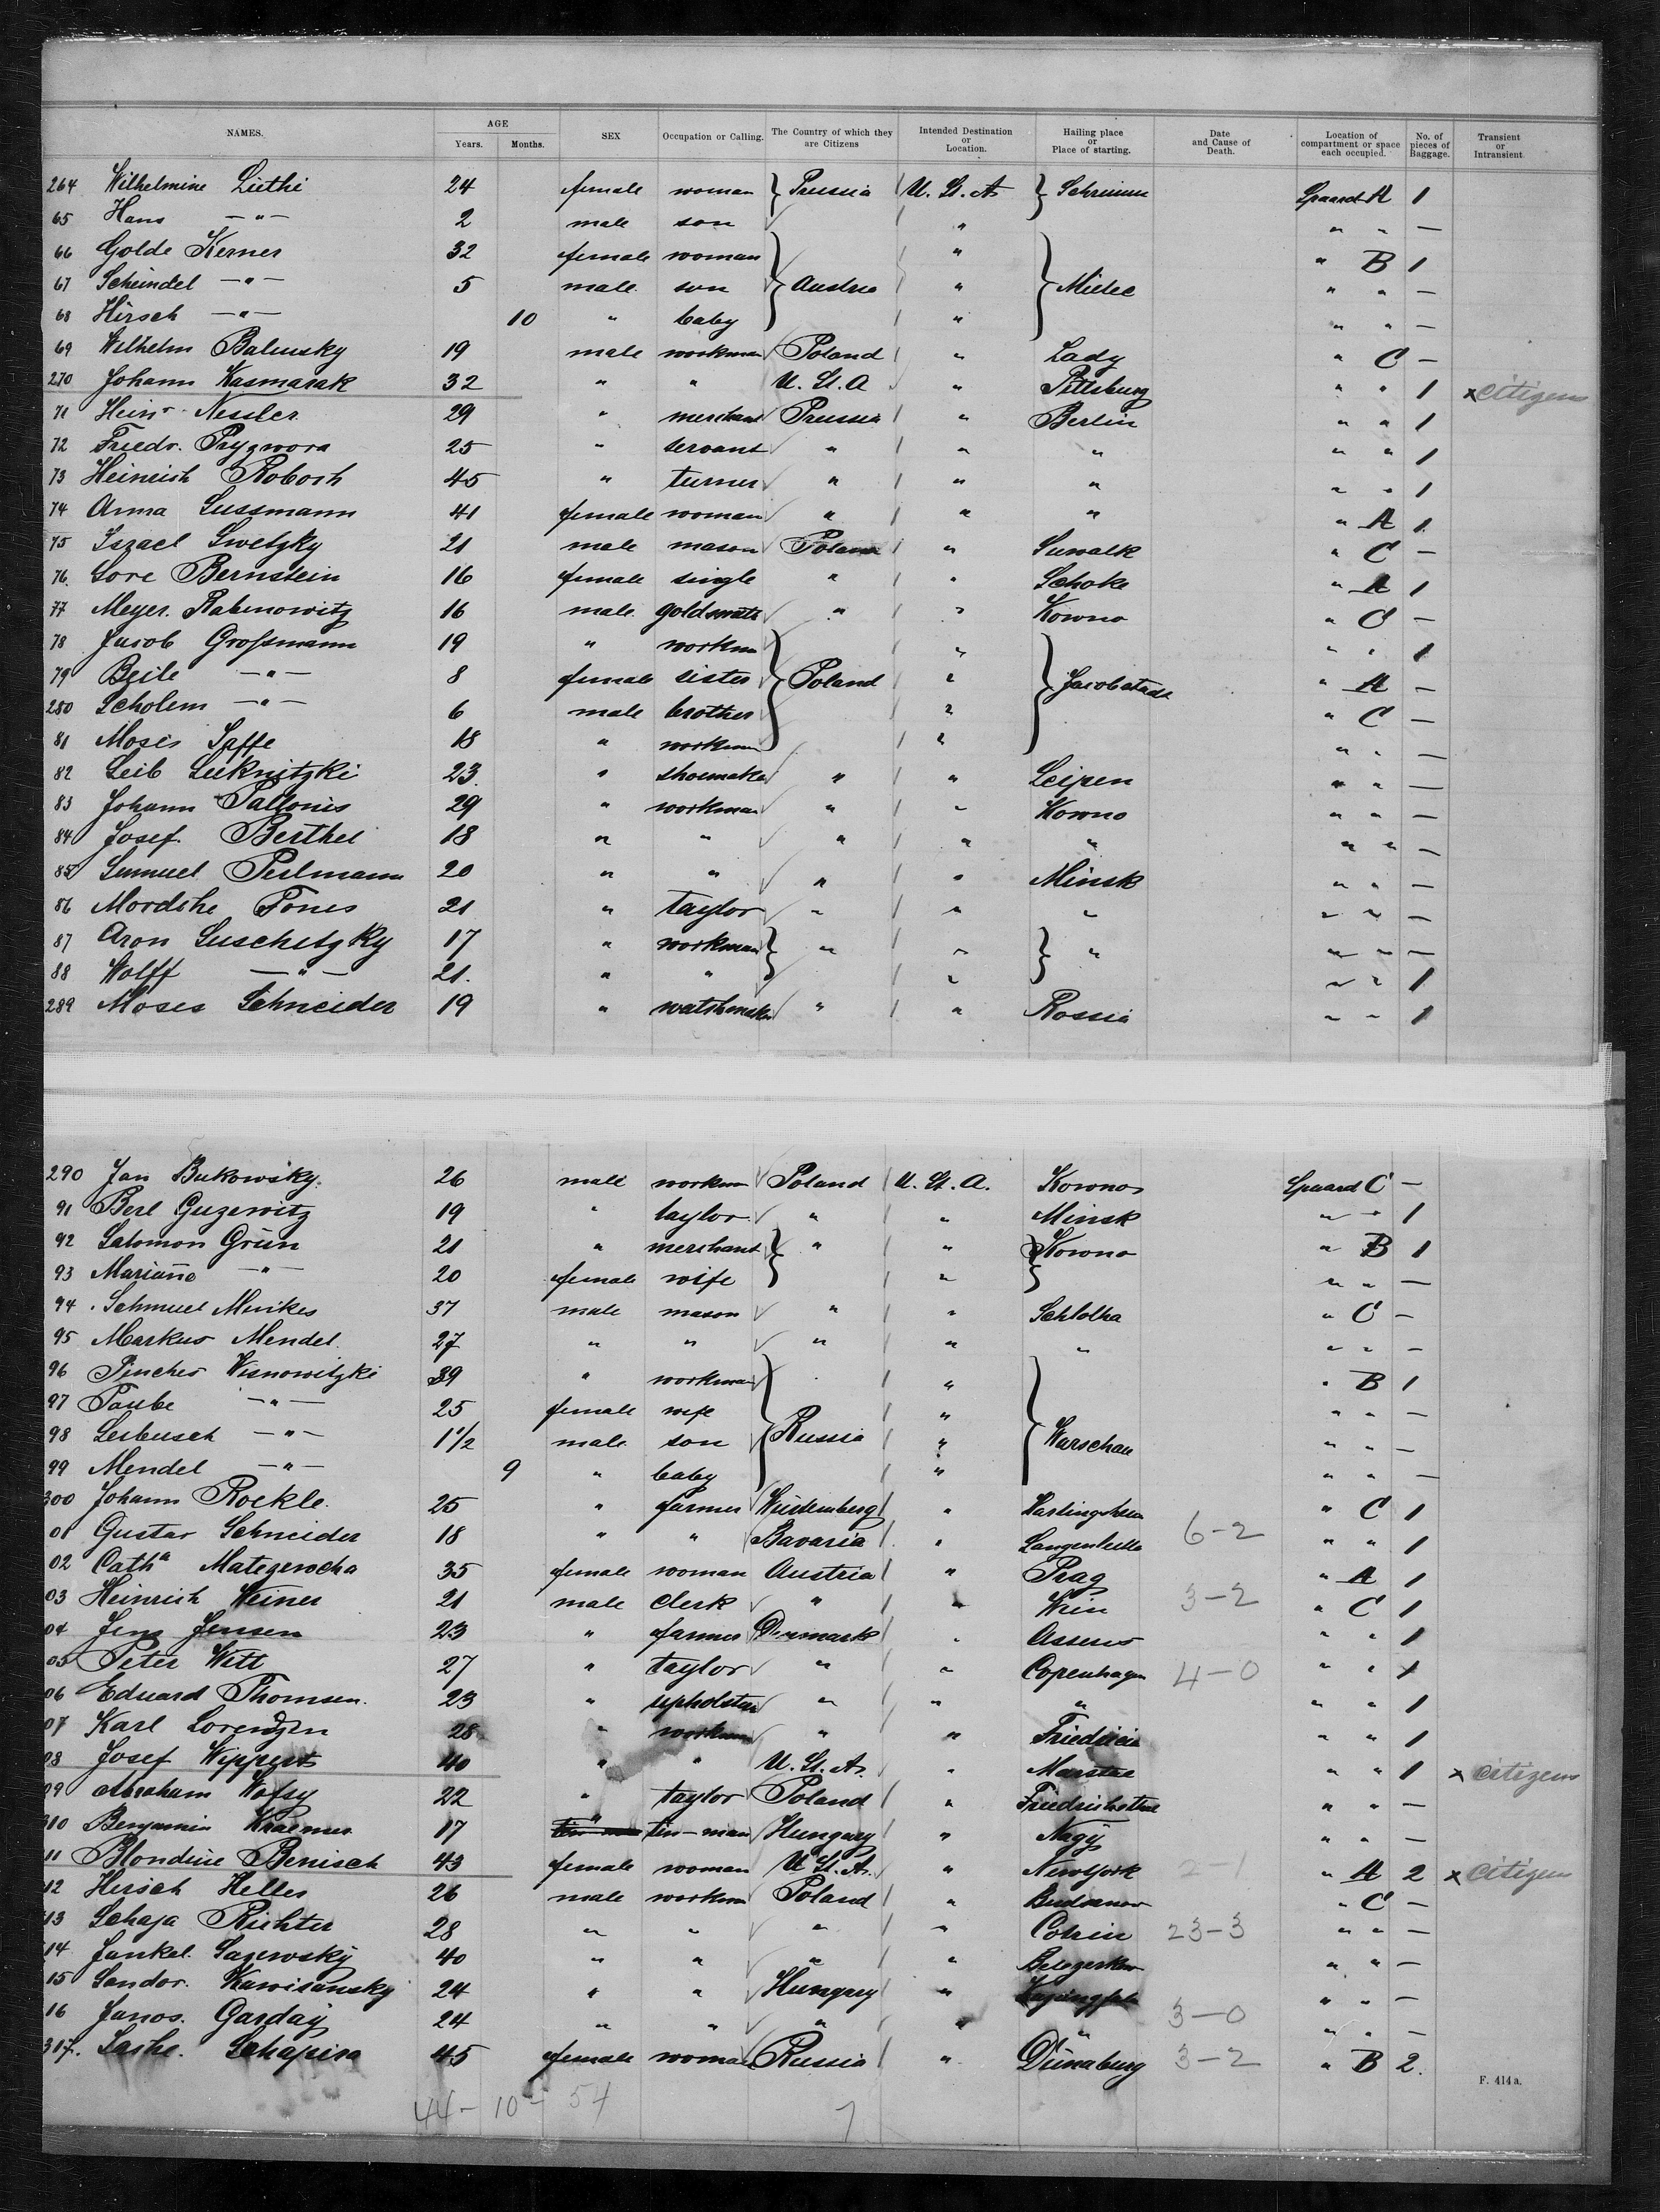 NAMES. AGE Years. Months. SEX Occupation or Calling. The Country of which they are Citizens Intended Destination or Location. Hailing place or Place of starting. Date and Cause of Death. Location of compartment or space each occupied. No. of pieces of Baggage. Transient or Intransient
264 Wilhelmine Liethi 24 female woman Prussia U. St. A Schrimm A 1
65 Hans —"— 2 male son " " " —
66 Golde Kerner 32 female woman " " B 1
67 Scheindel —"— 5 male son Austria " Mielec " " —
68 Hirsch —"— 10 " baby " " " —
69 Wilhelm Balinsky 19 male workman Poland " Lady " C —
270 Johann Kasmarak 32 " " U. St. A " Pittsburg " " 1 x citizen
71 Heinr. Nessler 29 " merchant Prussia " Berlin " " 1
72 Friedr. Prygwora 25 " servant " " " " " 1
73 Heinrich Robosh 45 " turner " " " " " 1
74 Anna Sussmann 41 female woman " " " " A 1
75 Iszael Swetzky 21 male mason Poland " Suwalk " C —
76. Sore Bernstein 16 female single " " Schoke " A 1
77 Meyer Rabinowitz 16 male goldsmith " " Kowno " C —
78 Jacob Großmann 19 " workman " " " 1
79 Beile —"— 8 female sister Poland " Jacobstadt " A —
280 Scholem —"— 6 male brother " " C —
81 Moses Jaffe 18 " workman " " " —
82 Leib Luknitzki 23. " shoemaker " " Leipen " " —
83 Johann Pallonis 29 " workman " " Kowno " " —
84 Josef Berthel 18 " " " " " " " —
85 Samuel Perlmann 20 " " " " Minsk " " —
86 Mordshe Fones 21 " taylor " " " " " —
87 Aron Luschitzky 17 " workman " " " " " —
88 Wolff —"— 21. " " " " " 1
289 Moses Schneider 19 " watchmaker " " Rossia " " 1
290 Jan Bukowsky. 26 male workman Poland U. St. A. Kowno C —
91 Berl Guzewitz 19 " taylor " " Minsk " " 1
92 Salomon Grün 21 " merchant " " Kowno " B 1
93 Mariane —"— 20 female wife " " " —
94 Schmuel Mirikes 37 male mason " " Schlolka " C —
95 Markus Mendel 27 " " " " " " " —
96 Pinches Wisnowitzki 39 " workman " " B 1
97 Taube —"— 25 female wife " " " —
98 Leibusch —"— 1 1/2 male son Russia " Warschau " " —
99 Mendel —"— 9 " baby " " " —
300 Johann Rockle 25 " farmer Würtemberg " " C 1
01 Gustav Schneider 18 " " Bavaria " 6-2 " " 1
02 Cath.a Matezerocha 35 female woman Austria " Prag " A 1
03 Heinrich Weiner 21 male clerk " " Wien 3-2 " C 1
04 Jens Jensen 23 " farmer Denmark " Assens " " 1
05 Peter Witt 27 " taylor " " Copenhagen 4-0 " " 1
06 Eduard Thomsen. 23 " upholsterer " " " " " 1
07 Karl Lorendzen 28 " workman " " Friedricia " " 1
08 Josef Wippert 40 " " U. St. A. " Marstal " " 1 x citizen
09 Abraham Wofsy 22 " taylor Poland " " " —
310 Benjamin Kraemer 17 " tin-man Hungary " Nagy " " —
11 Blondine Benisch 43 female woman U. St. A. " NewYork 2-1 " A 2 x citizen
12 Hirsch Heller 26 male workman Poland " " C —
13 Schaja Richter 28 " " " " 23-3 " " —
14 Jankel Sagewsky 40 " " " " " " —
15 Sandor Kawisansky 24 " " Hungary " " " —
16 Janos. Garday 24 " " " " " 3-0 " " —
317. Sashe. Schapira 45 female woman Russia " Dünaburg 3-2 " B 2.
F. 414 a.
44- 10- 54 7